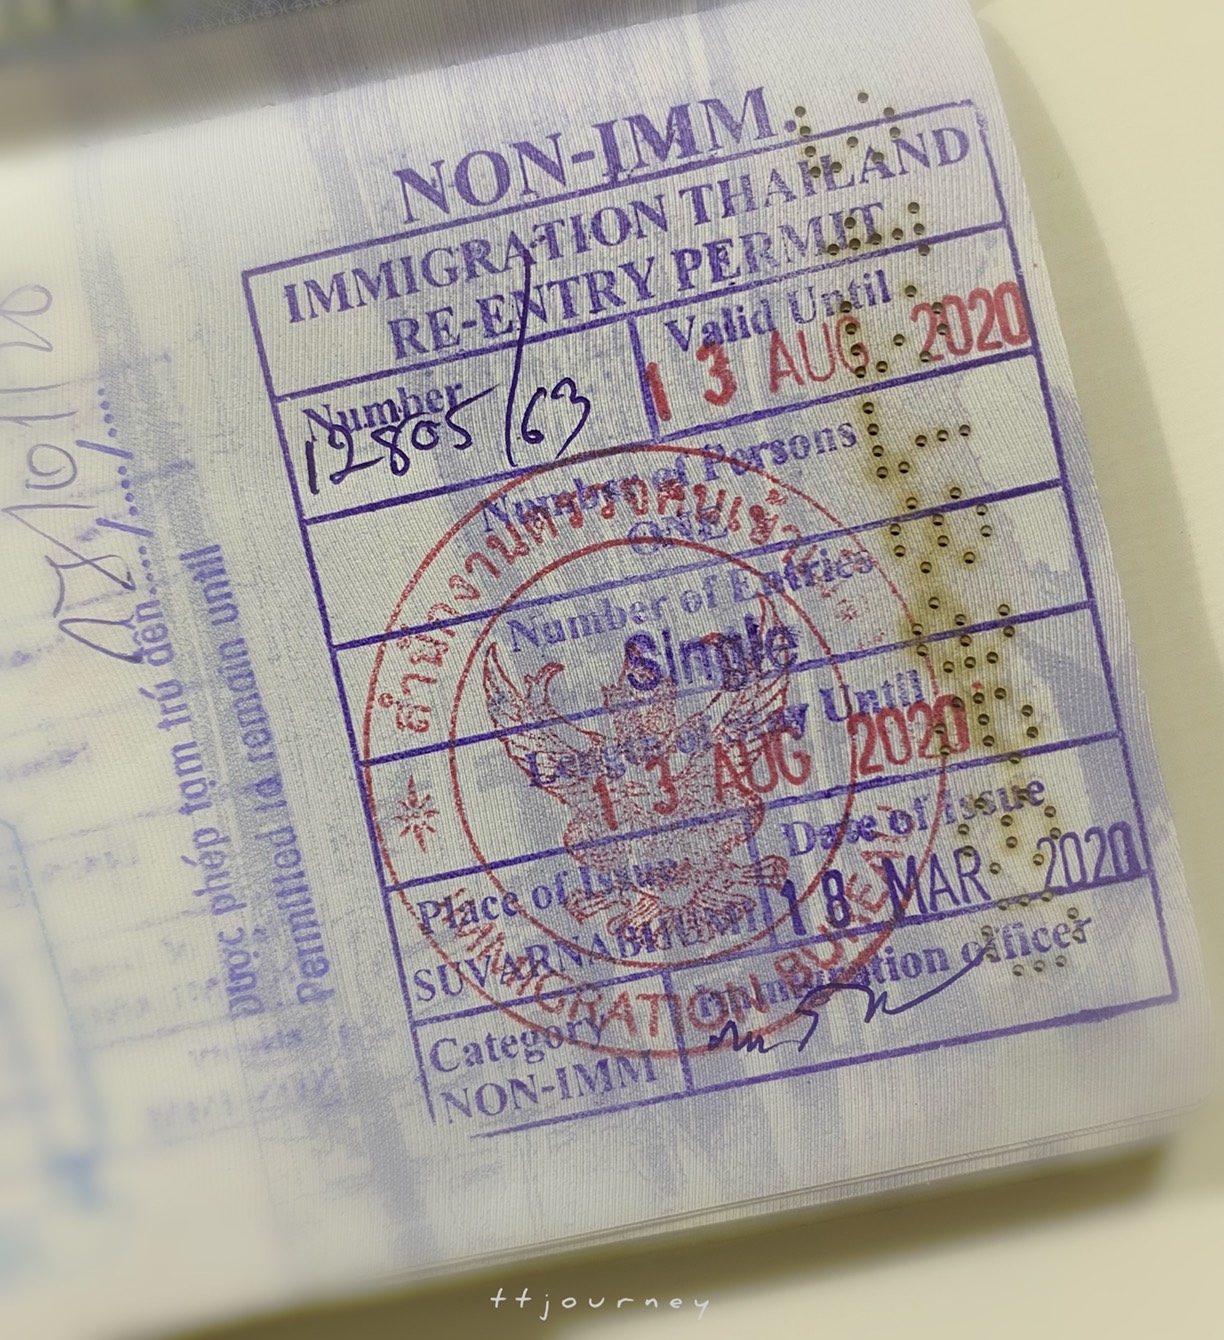 NON-IMM.
IMMIGRATION THAILAND
RE-ENTRY PERMIT
Number
12805/63
Valid Until
13 AUG 2020
Number of Persons
ONE
Number of Entries
Single
Length of Stay Until
13 AUG 2020
Place of Issue
SUVARNABHUMI
Date of Issue
18 MAR 2020
Category
NON-IMM
Immigration officer
สำนักงานตรวจคนเข้าเมือง
IMMIGRATION BUREAU
Được phép tạm trú đến
Permitted to remain until
ttjourney